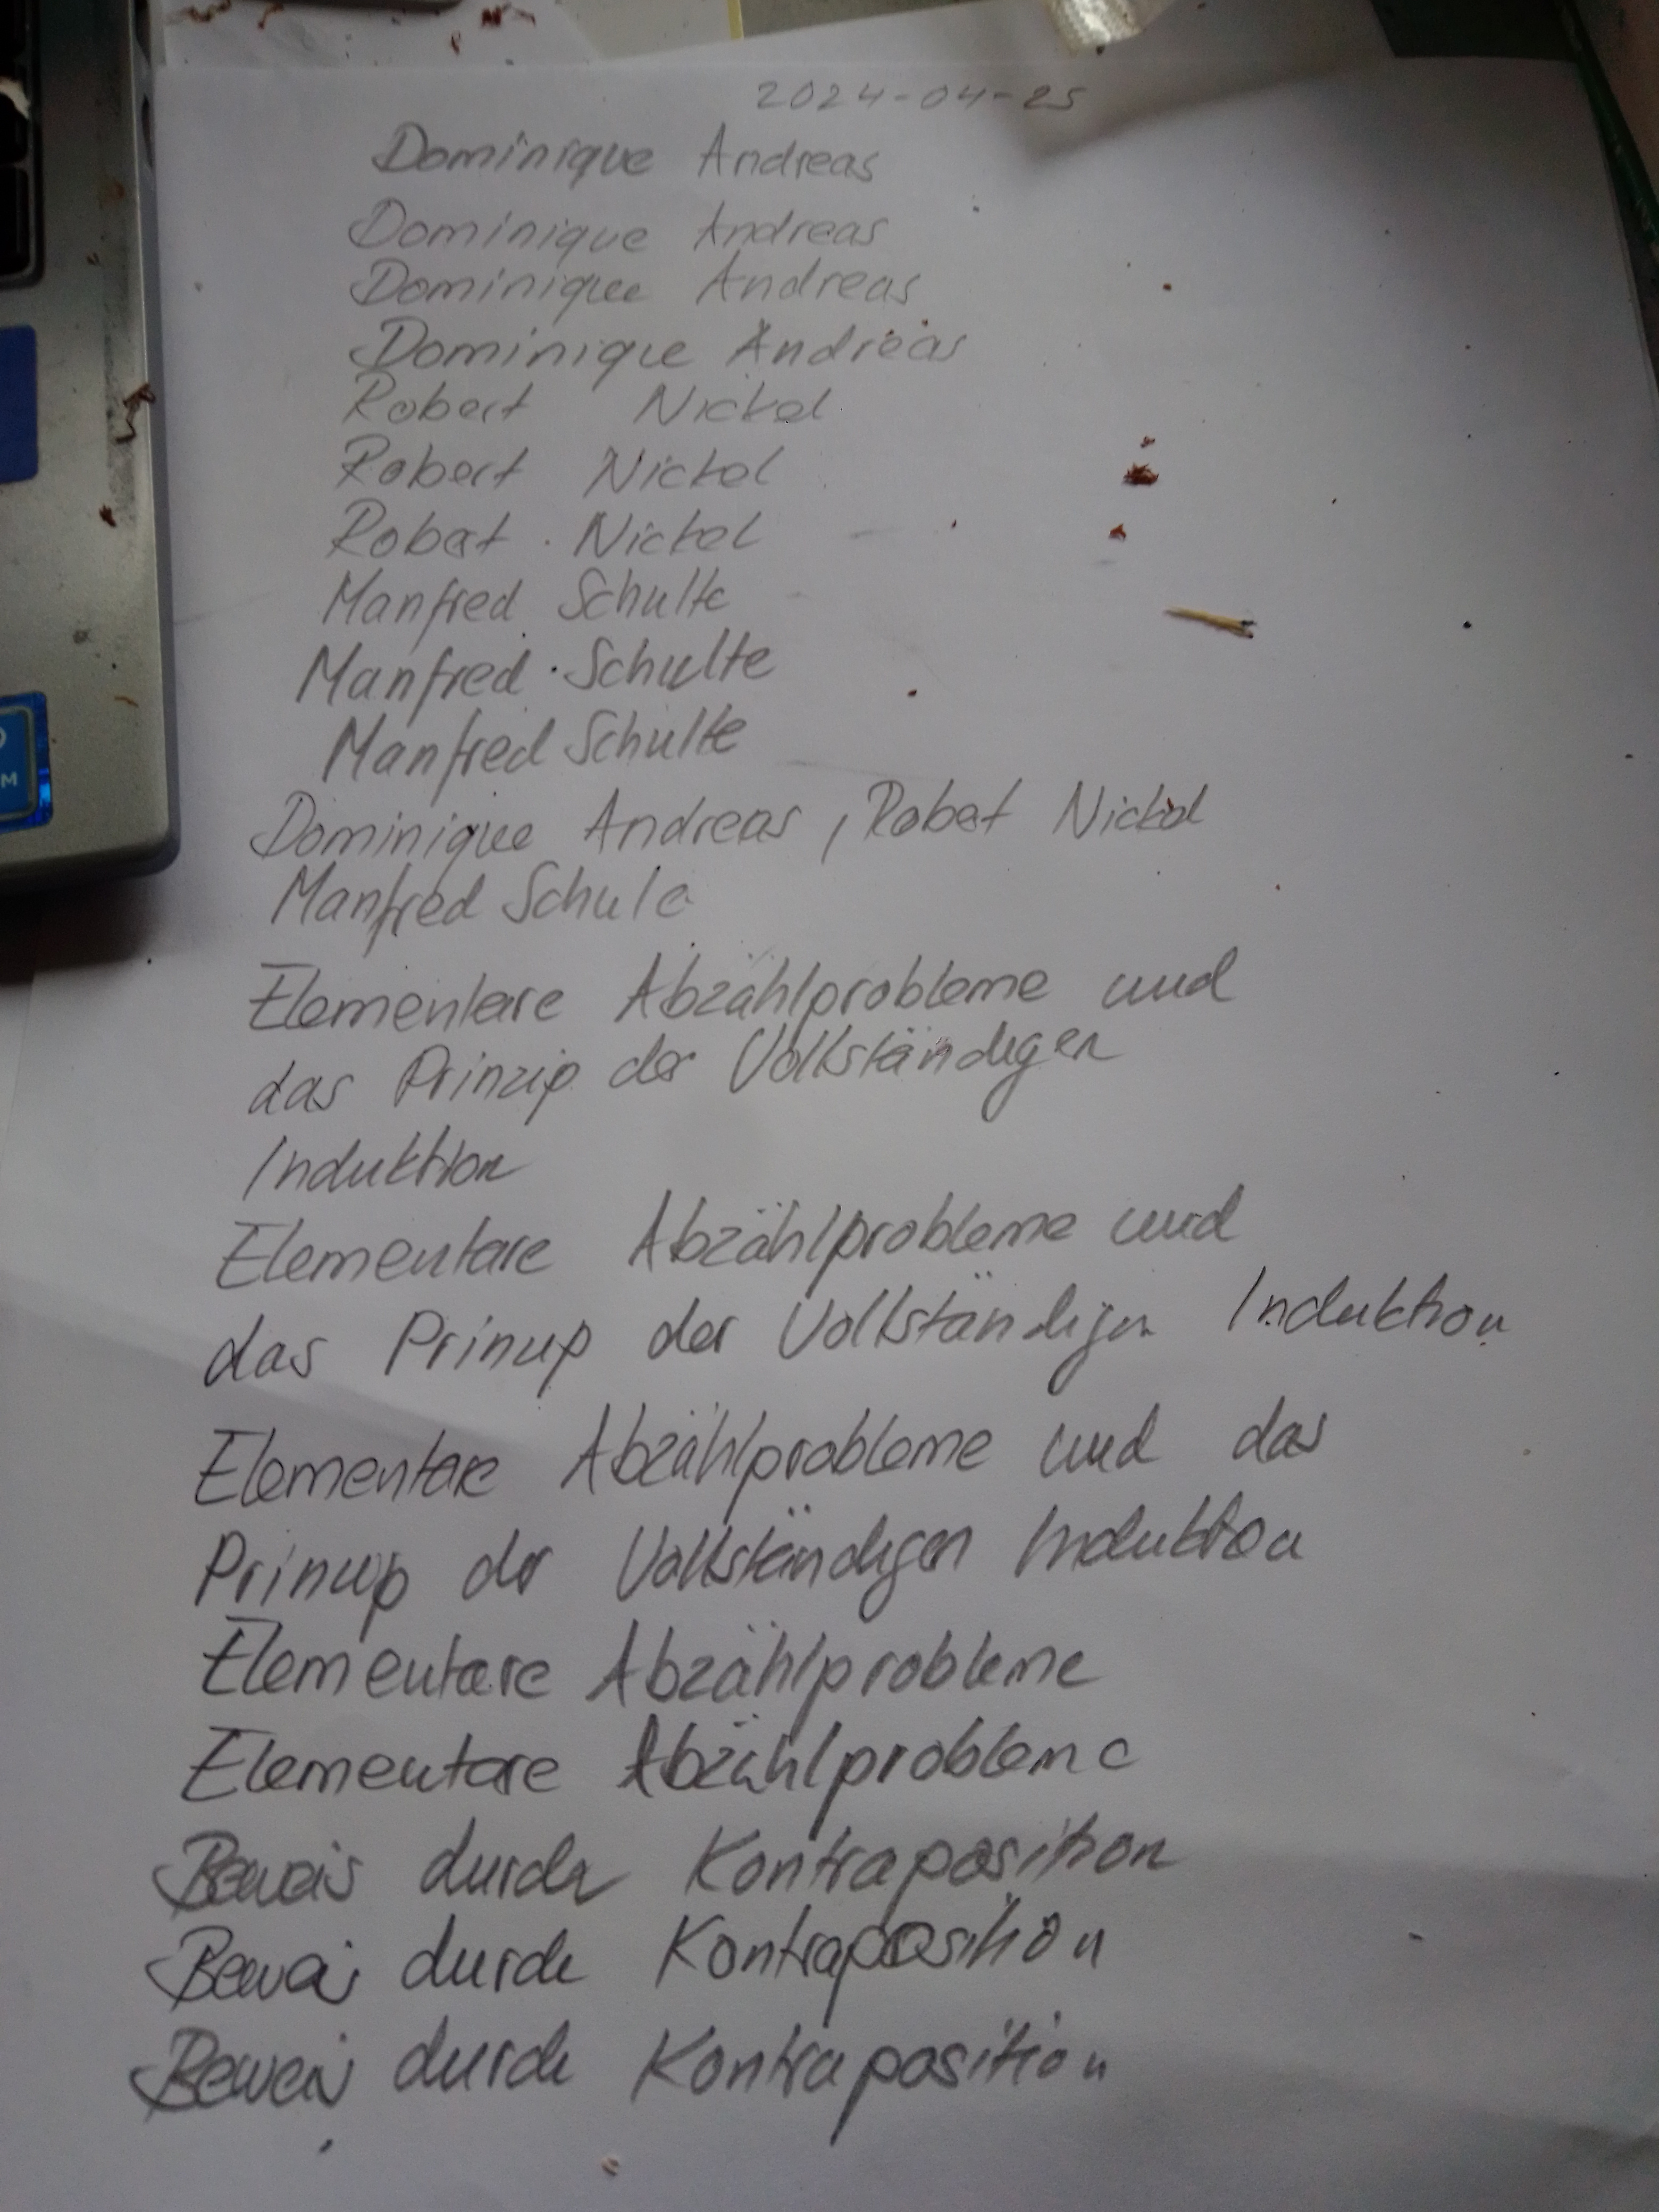 2024-04-25
Dominique Andreas
Dominique Andreas
Dominique Andreas
Dominique Andreas
Robert Nickel
Robert Nickel
Robert Nickel
Manfred Schulte
Manfred Schulte
Manfred Schulte
Dominique Andreas, Robert Nickel
Manfred Schule
Elementare Abzählprobleme und
das Prinzip der Vollständigen
Induktion
Elementare Abzählprobleme und
das Prinzip der Vollständigen Induktion
Elementare Abzählprobleme und das
Prinzip der Vollständigen Induktion
Elementare Abzählprobleme
Elementare Abzählprobleme
Beweis durch Kontraposition
Beweis durch Kontraposition
Beweis durch Kontraposition
M